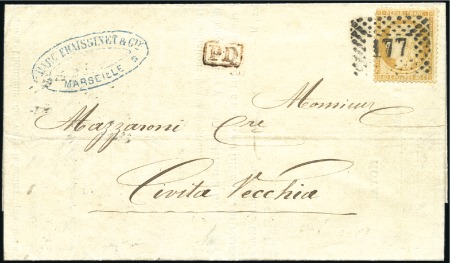 MARC FRAISSINET & Cie
MARSEILLE
P.D.
177
Monsieur
Mazzaroni
Civita Vecchia